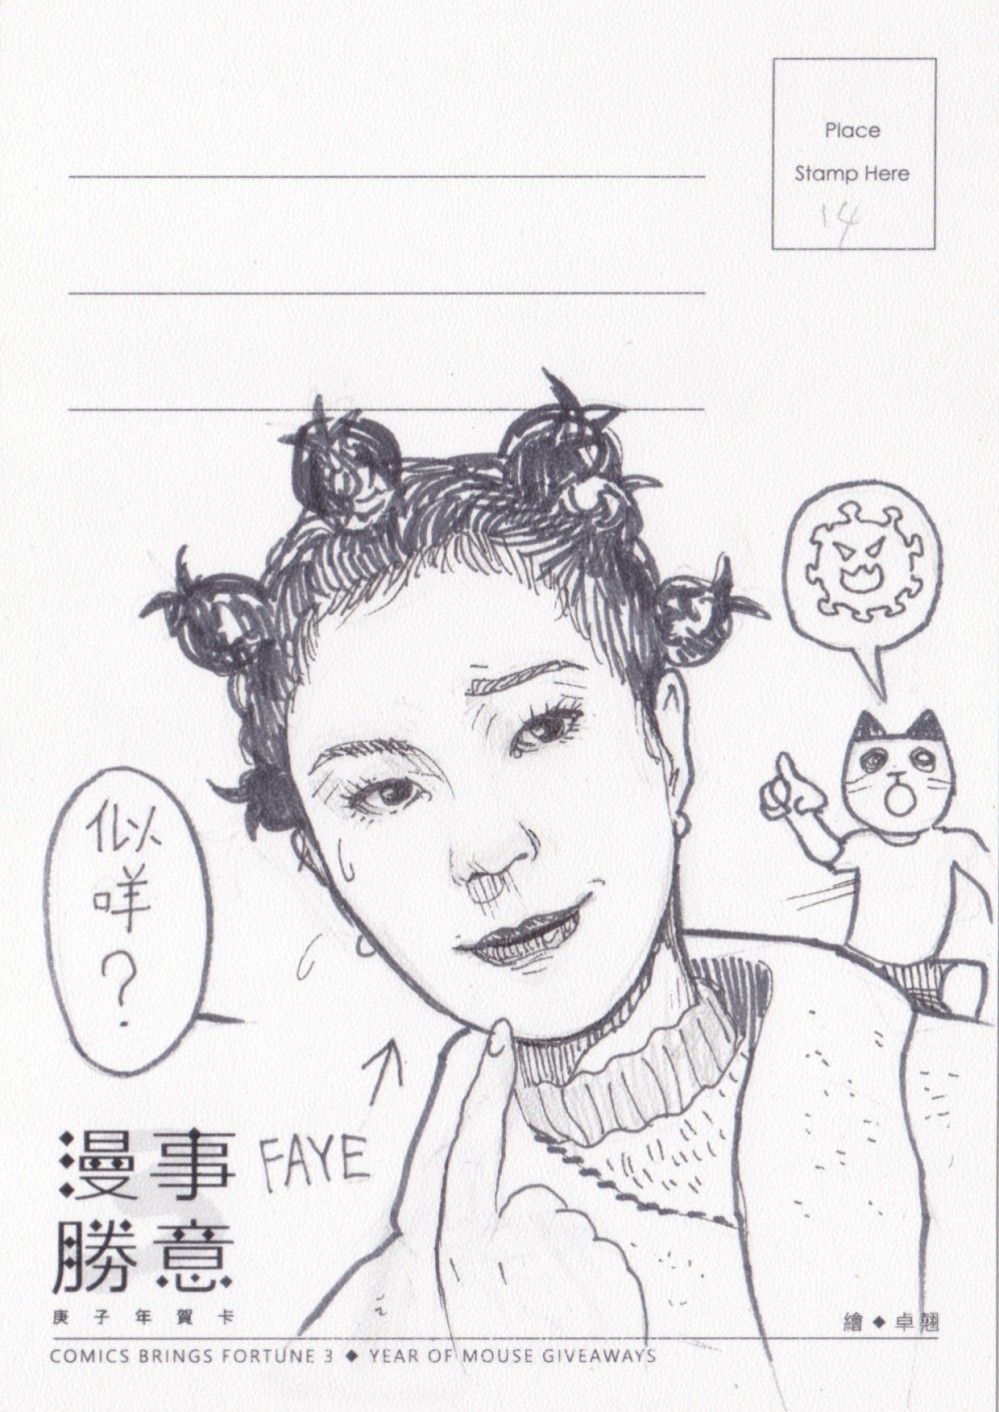 Place
Stamp Here
14
似
咩
?
FAYE
漫事
勝意
庚子年賀卡
繪◆卓翹
COMICS BRINGS FORTUNE 3 ◆ YEAR OF MOUSE GIVEAWAYS